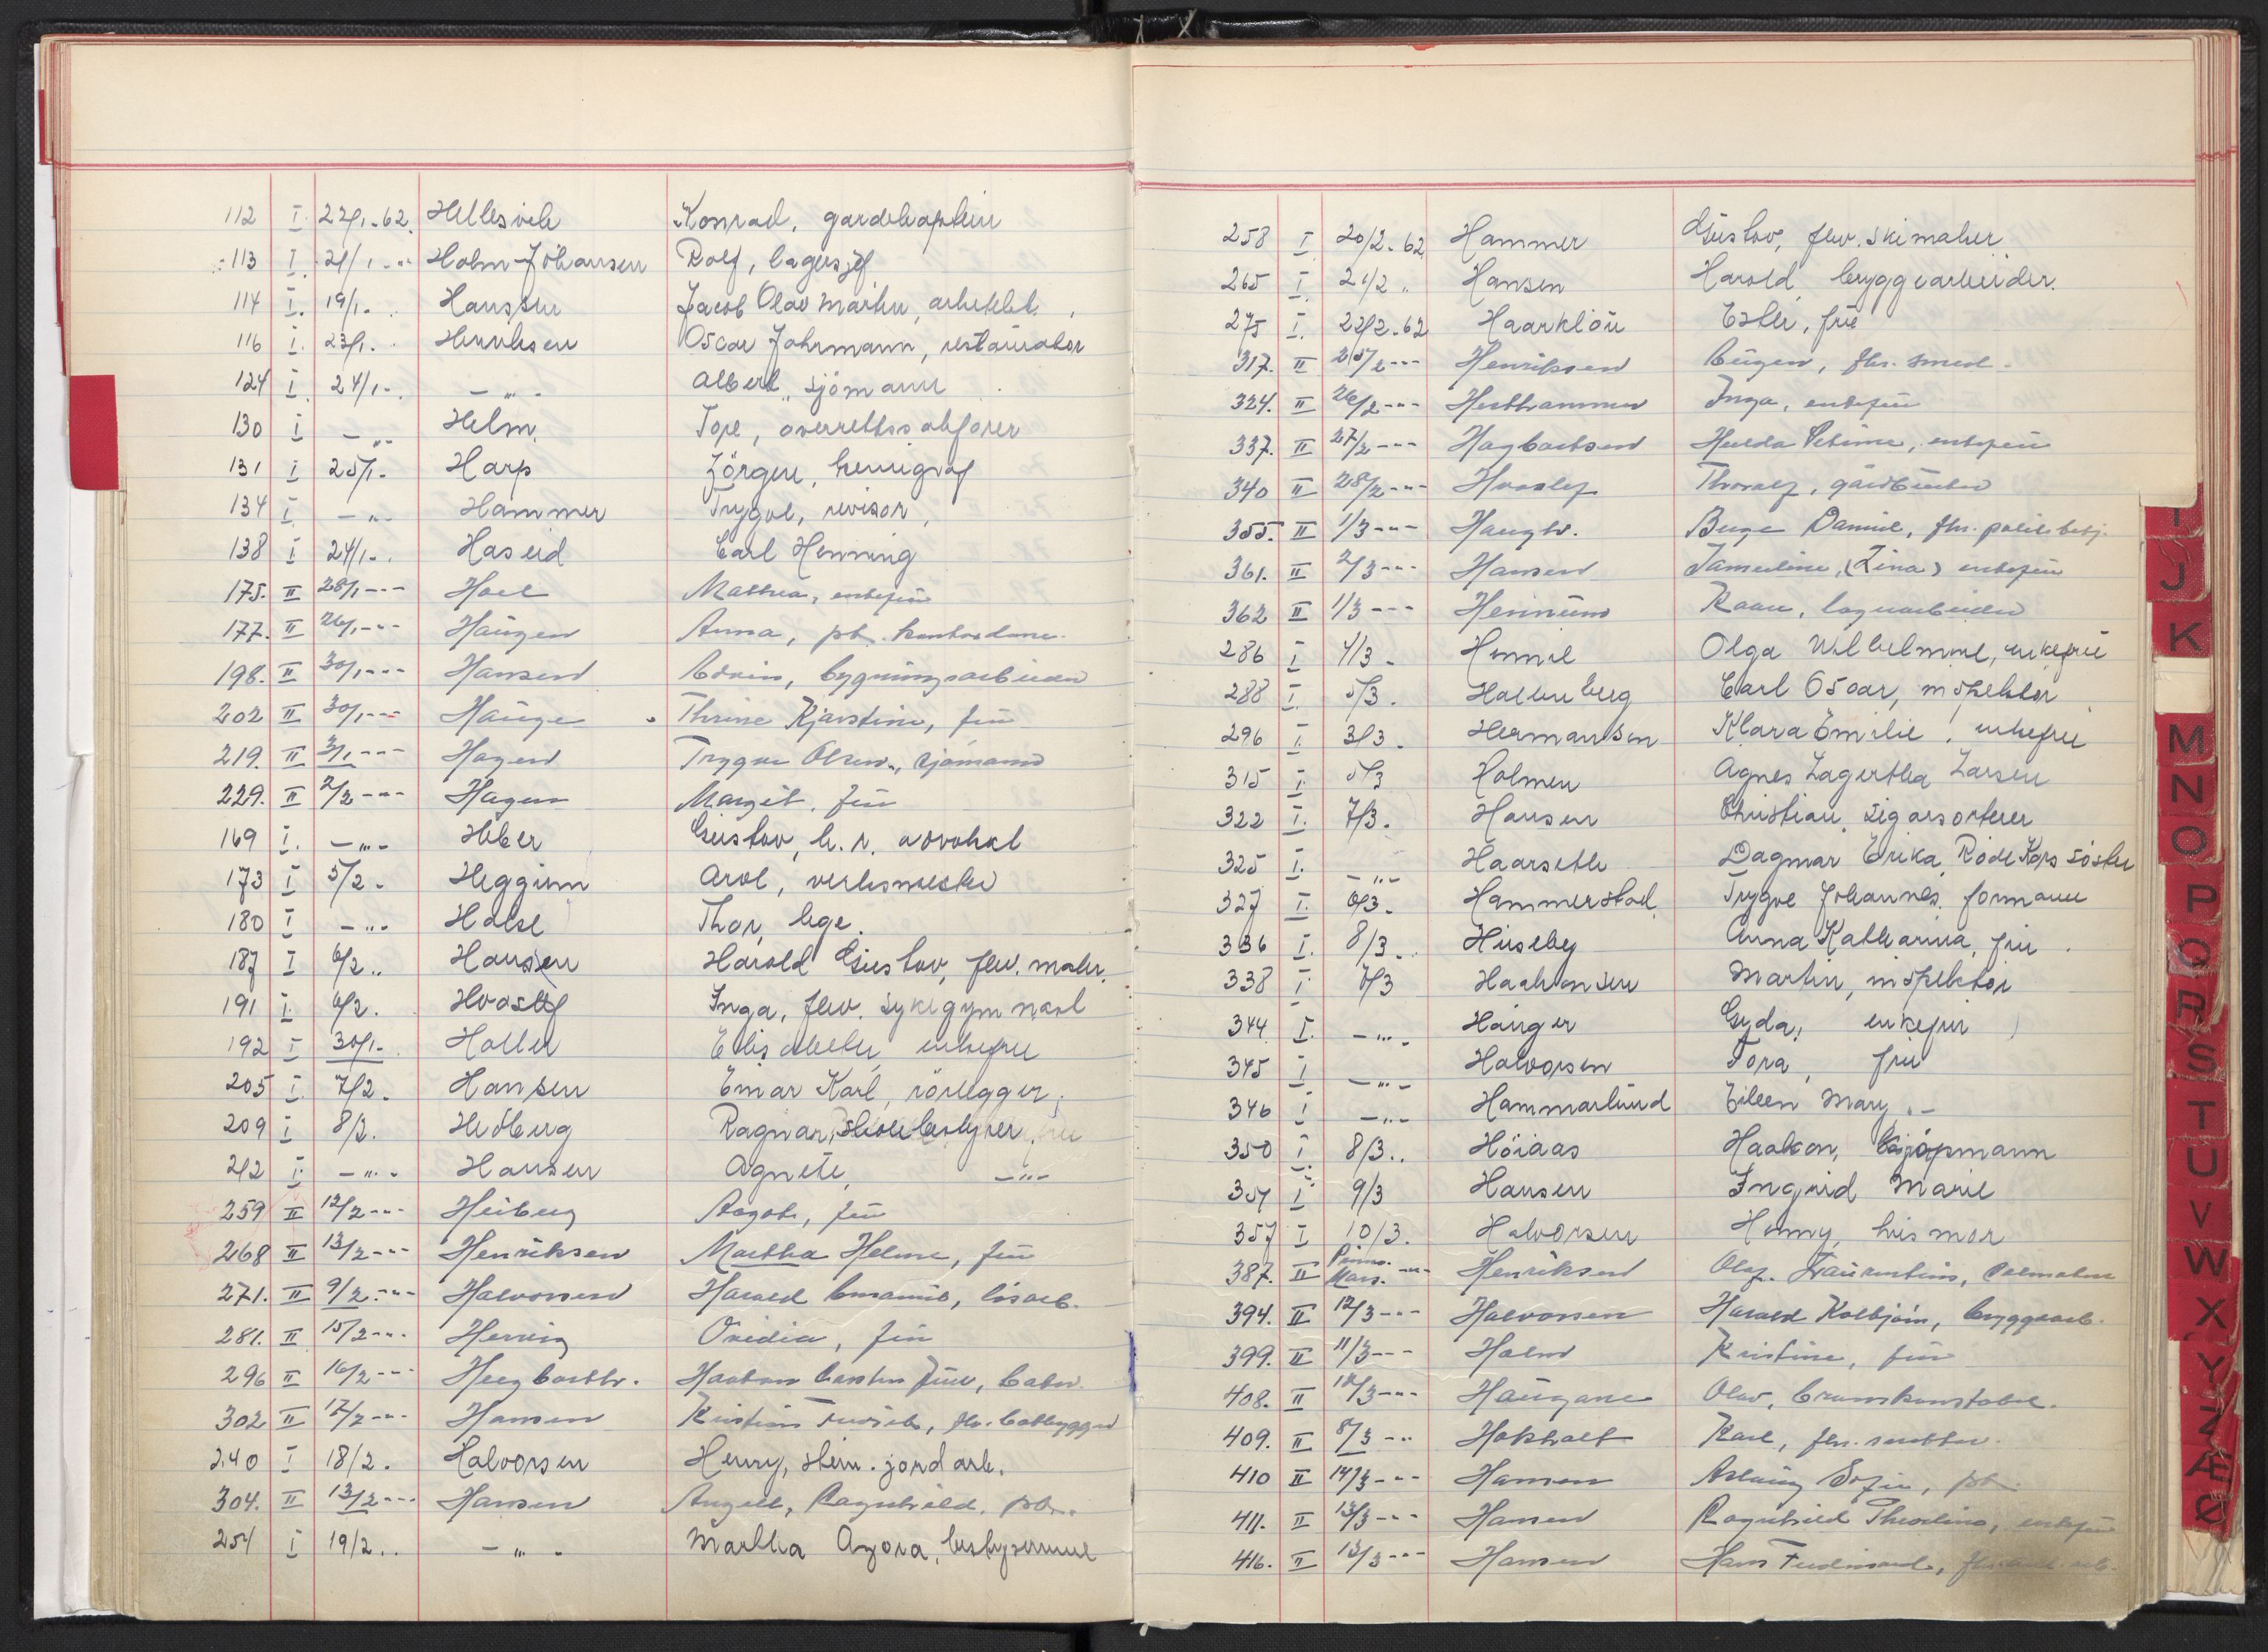 112 I. 22/1-62. Hellesvik Konrad, gardekaptein
113 I. 21/1-"- Holm-Jöhansen Rolf, lagersjef
114 I. 19/1- Hanssen Jacob Olav Martin, arkitekt.
116 I. 23/1- Henriksen Oscar Johrmann, restauratør
124 I. 24/1- -"- Albert, sjömann
130 I -"- Helm Tore, overrettssakfører
131 I 25/1- Harp Jörgen, kemigraf
134 I. -"- Hammer Trygve, revisor
138 I 24/1- Haseid Carl Henning
175. II 28/1-"- Hoel Mathea, enkefrue
177. II 26/1-"- Haugen Anna, pb. kontordame
198. II 30/1-"- Hansen Edvin, bygningsarbeider
202 II 30/1-"- Hauge Thrine Kjerstine, frue
219. II 31/1-"- Hagen Trygve Olsen, sjømann
229. II 2/2-"- Hagen Margit, frue
169 I. -"- Heber Gustav, h.r. advokat
173 I 5/2- Heggum Arvl, verksmester
180 I -"- Halse Thor, lege.
187 I 6/2.. Hansen Harald Gustav, fhv. maler.
191 I. 6/2. Hvoslef Inga, fhv. sykegymnast
192 I 30/1- Holter Elisabeth, enkefrue
205 I. 7/2. Hansen Einar Karl, rörlegger,
209 I 8/2. Hedberg Ragnar, skolebestyrer
212 I. -"- Hansen Agnete, -"-
259 II 12/2-"- Heiberg Aagot, frue
268 II 13/2-"- Henriksen Martha Helene, frue
271. II 9/2-"- Halvorsen Harald Emanuel, løsarb.
281. II 15/2-"- Herwig Ovidia, frue
296 II 16/2-"- Hegbarth. Haakon Carsten
302 II 17/2-"- Hansen Kristian Fredrik, fhv. båtbygger
240 I 18/2. Halvorsen Henry, stein. jordarb.
304. II 13/2-"- Hansen Angell, Ragnhild, pb.
254 I 19/2.. -"- Martha Agora, bestyrerinne
258 I 20/2-62 Hammer Gustav, fhv. skimaker
265 I. 21/2 " Hansen Harald, bryggearbeider.
275 I. 22/2-62 Haarklöu Ester, frue
317. II 25/2-"- Henriksen Eugen, fhv. smed.
324. II 26/2-"- Hesthammer Inga, enkefrue
337. II 27/2-"- Hagbartsen Hulda Petrine, enkefrue
340 II 28/2-"- Hvoslef Thoralf, gårdbruker
355. II 1/3-"- Haugtr. Birger Daniel, fhv. politibetj.
361. II 2/3-"- Hansen Tamerline, (Lina) enkefrue
362 II 1/3-"- Hennum Kaare, lagerarbeider
286 I 4/3- Hennie Olga Wilhelmine, enkefrue
288 I. 5/3. Hallenberg Carl Oscar, inspektør
296 I. 3/3- Hermansen Klara Emilie, enkefrue
315 I. 5/3 Holmen Agnes Lagertha Larsen
322 I. 7/3. Hansen Christian, sigarsorterer
325 I. -"- Haarseth Dagmar Erika, Röde Kors söster
327 I. 6/3. Hammerstad Trygve Johannes, formann
336 I. 8/3.. Huseby Anna Katharina, frue
338 I. 7/3 Haakonsen Martin, inspektör
344 I. -"- Hauger Gyda, enkefrue
345 I -"- Halvorsen Tora, frue
346 I -"- Hammarlund Eileen Mary. -
350 I. 8/3.. Höiaas Haakon, kjöpmann
354 I 9/3 Hansen Ingrid Marie
357 I 10/3. Halvorsen Henny, husmor
387. II Prims. Mars. -"- Henriksen Olaf Laurentius,
394. II 12/3-"- Halvorsen Harald Kolbjørn, bryggearb.
399. II 11/3-"- Holm Kristine, frue
408. II 12/3-"- Haugane Olav, brannkonstabel.
409. II 8/3-"- Hokholt Karl, fhv. snekker
410 II 14/3-"- Hansen Aslaug Sofie, pb.
411. II 13/3-"- Hansen Ragnhild Theoline, enkefrue
416. II 13/3-"- Hansen Hans Ferdinand,
J
K
M
N
O
P
Q
R
S
T
U
V
W
X
Y
Z
Æ
Ø